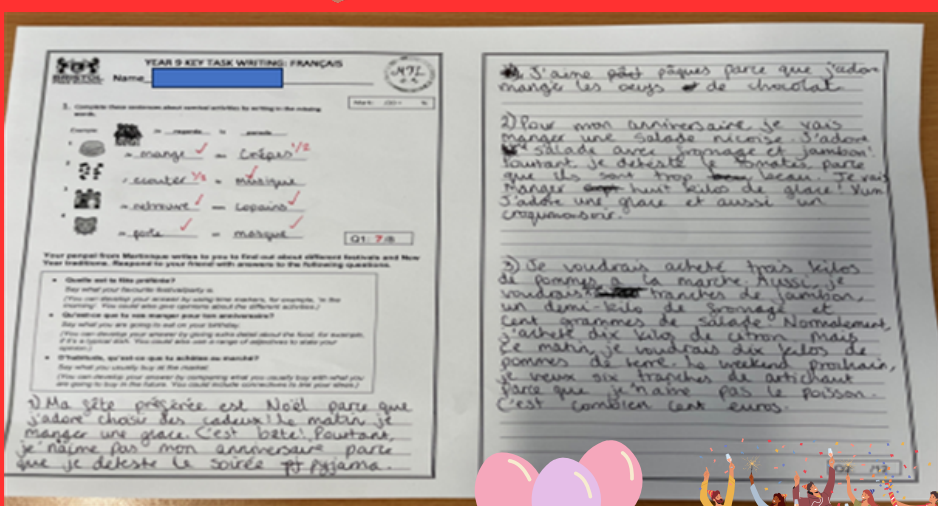 BRISTOL
YEAR 9 KEY TASK WRITING: FRANÇAIS
Name
1. Complete these sentences about carnival activities by writing in the missing words.
Example
regarde parade
1 mange ✓ crêpes 1/2
2 ecouter 1/2 musique ✓
3 retrouve ✓ copains ✓
4 porte ✓ masque ✓
Q1: 7/8
Your penpal from Martinique writes to you to find out about different festivals and New
Year traditions. Respond to your friend with answers to the following questions.
• Quelle est ta fête préférée?
Say what your favourite festival/party is.
(You can develop your answer by using time markers, for example, 'in the
morning'. You could also give opinions about the different activities.)
• Qu'est-ce que tu vas manger pour ton anniversaire?
Say what you are going to eat on your birthday.
(You can develop your answer by giving extra detail about the food, for example,
if it's a typical dish. You could also use a range of adjectives to state your
opinion.)
• D'habitude, qu'est-ce que tu achètes au marché?
Say what you usually buy at the market.
(You can develop your answer by comparing what you usually buy with what you
are going to buy in the future. You could include connectives to link your ideas.)
1) Ma fête préférée est Noël parce que
j'adore choisir des cadeux! Le matin je
manger une glace. C'est bête! Pourtant,
je n'aime pas mon anniversaire parce
que je deteste le soirée pyjama.
J'aime pâques parce que j'adore
manger les oeufs de chocolat
2) Pour mon anniversaire, je vais
manger une salade niçoise. J'adore
salade avec fromage et jambon!
Pourtant, je deteste le tomates parce
que ils sont trop beau. Je vais
manger huit kilos de glace! Yum
J'adore une glace et aussi un
croqumonsoir.
3) Je voudrais acheté trois kilos
de pommes a la marche. Aussi, je
voudrais tranches de jambon,
un demi-kilo de fromage et
cent grammes de salade! Normalement,
j'acheté dix kilos de citron mais
Le matin, je voudrais dix kilos de
pommes de terre. Le weekend prochain,
je veux six tranches de artichaut
parce que je n'aime pas le poisson.
C'est combien cent euros.
Q2 /12